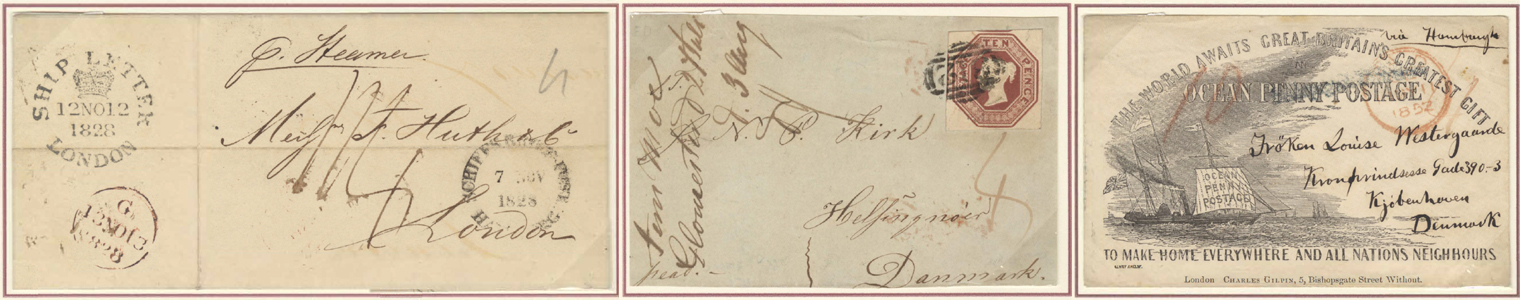 p. Steamer
4
SHIP LETTER
12NO12
1828
LONDON
Mess F. Huth & Co
London
SCHIFFS BRIEF-POST
7 NOV
1828
HBG.
G
13NO13
1828
TEN PENCE
N. P. Kirk
Helsingnoir
Danmark.
4
via Hamburgh
THE WORLD AWAITS GREAT BRITAIN'S GREATEST GIFT
OCEAN PENNY POSTAGE
1852
Fröken Louise Westergaarde
Kronprindsesse Gade 390-3
Kjöbenhaven
Denmark
OCEAN
PENNY
POSTAGE
TO MAKE HOME EVERYWHERE AND ALL NATIONS NEIGHBOURS
London CHARLES GILPIN, 5, Bishopsgate Street Without.